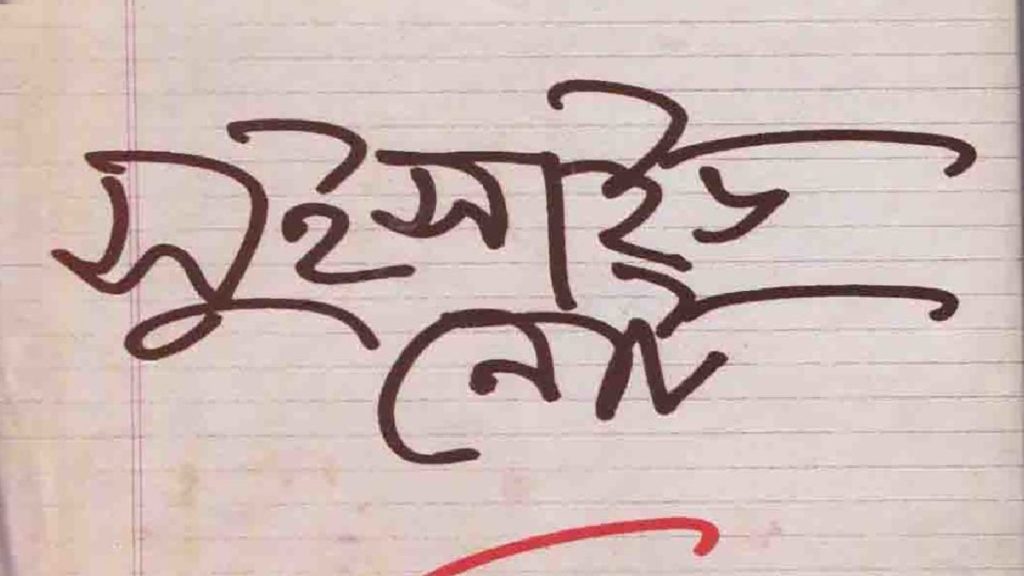 সুইসাইড
নোট